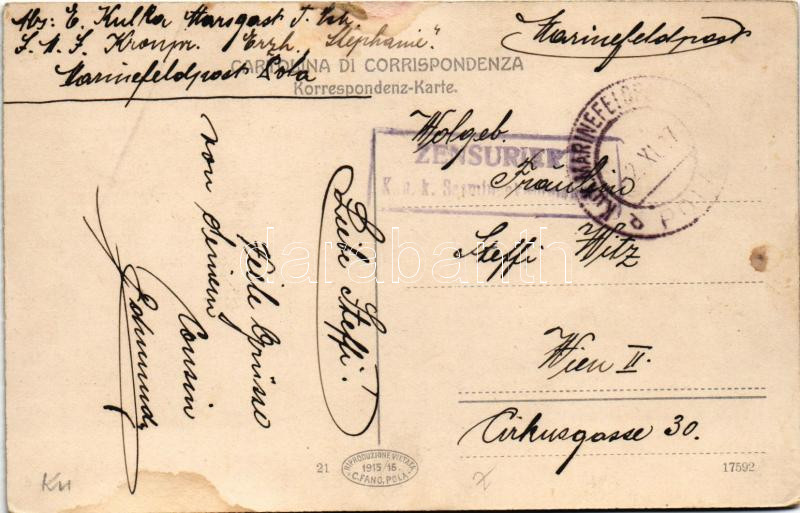 Abs: E. Kulka Marsgast I. Kl.
S. M. S. Kronpr. Erzh. Stephanie".
Marinefeldpost Pola
Marinefeldpost
CARTOLINA DI CORRISPONDENZA
Korrespondenz-Karte.
ZENSURIERT
K. u. k.
K.u.K. MARINEFELDP
2. XI. 17
POLA
Wolgeb
Fräulein
Steffi Witz
Wien II.
Cirkusgasse 30.
Liebe Steffi!
Viele Grüsse
von deinem
Cousin
Edmund
darabanth
21
RIPRODUZIONE VIETATA
1915/16
C. FANO, POLA
17592